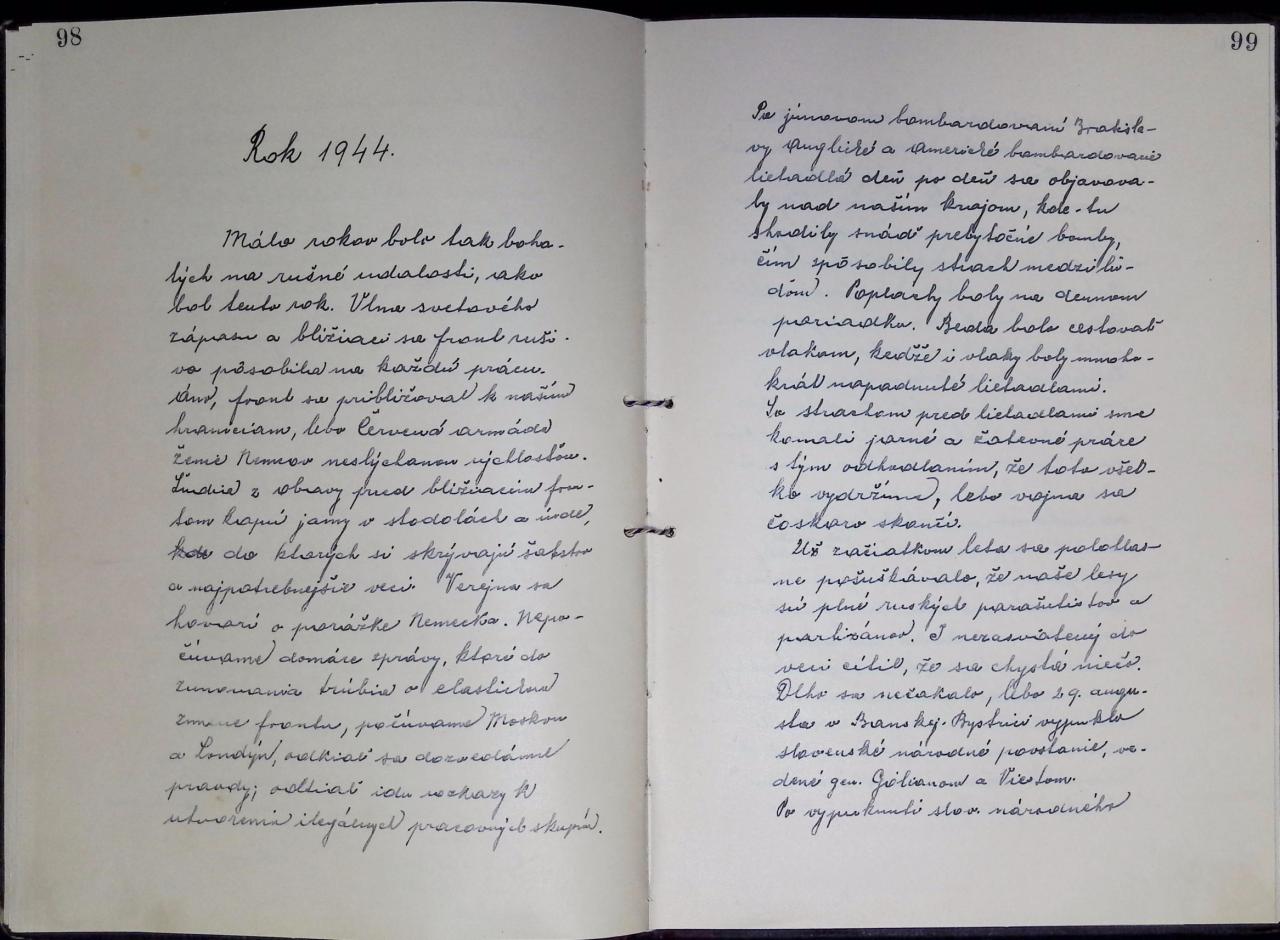 98
Rok 1944.
Málo rokov bolo tak boha-
tých na rušné udalosti, ako
bol tento rok. Vlna svetového
zápasu a bližiaci sa front ruši-
vo pôsobila na každú prácu.
Áno, front sa približoval k našim
hraniciam, lebo Červená armáda
ženie Nemcov neslýchanou rýchlosťou.
Ľudia z obavy pred bližiacim fron-
tom kopú jamy v stodolách a inde,
kde do ktorých si skrývajú šatstvo
a najpotrebnejšie veci. Verejne sa
hovorí o porážke Nemecka. Nepo-
čúvame domáce zprávy, ktoré do
zunovania trúbia o elastickej
zmene frontu, počúvame Moskvu
a Londýn, odkiaľ sa dozvedáme
pravdy; odtiaľ idu rozkazy k
utvoreniu ilegálnych pracovných skupín.
99
Po júnovom bombardovaní Bratisla-
vy anglické a americké bombardovacie
lietadlá deň po deň sa objavova-
ly nad naším krajom, kde-tu
shodily snáď prebytočné bomby,
čím spôsobily strach medzi ľu-
ďmi. Poplachy boly na dennom
poriadku. Beda bolo cestovať
vlakom, keďže i vlaky boly mnoho-
krát napadnuté lietadlami.
So strachom pred lietadlami sme
konali jarné a žatevné práce
s tým odhodlaním, že toto všet-
ko vydržíme, lebo vojna sa
čoskoro skončí.
Už začiatkom leta sa polohlas-
ne pošuškávalo, že naše lesy
sú plné ruských parašutistov a
partizánov. I nezasvätený do
veci cítil, že sa chystá niečo.
Dlho sa nečakalo, lebo 29. augu-
sta v Banskej-Bystrici vypuklo
slovenské národné povstanie, ve-
dené gen. Gólianom a Viestom.
Po vypuknutí slov. národného